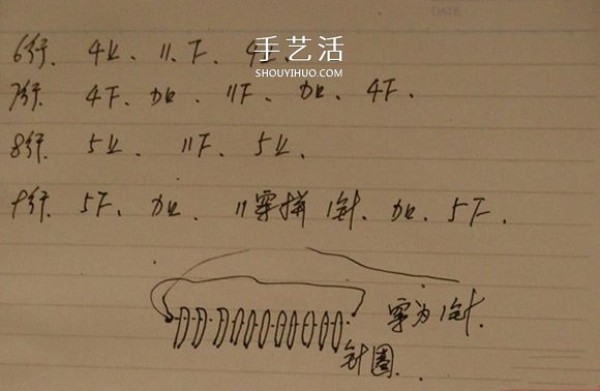 6行、4上、11下、4上、
手艺活
SHOUYIHUO.COM
7行、4下、加上、11下、加上、4下、
8行、5上、11下、5上、
9行、5下、加上、11穿拼1针、加上、5下、
穿为1针、
针圈、